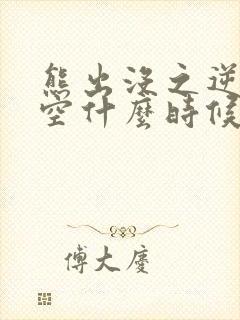 熊出沒之逆
空什麼時候
傅大慶